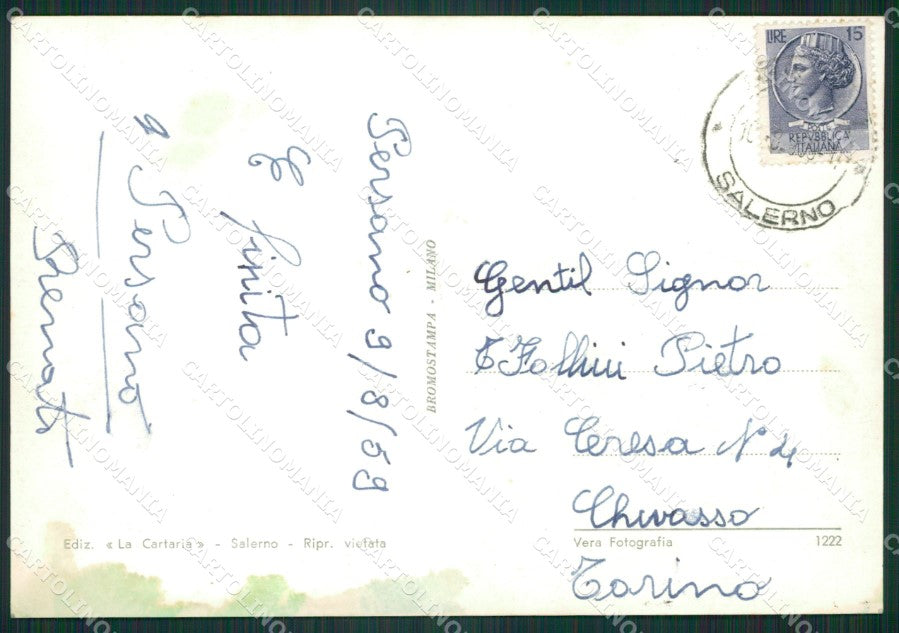 Persano 9/8/59
E finita
a Persano
Renato
BROMOSTAMPA - MILANO
LIRE 15
POSTE
REPVBBLICA
ITALIANA
SALERNO
Gentil Signor
Follini Pietro
Via Ceresa N 4
Chivasso
Torino
Ediz. « La Cartaria » - Salerno - Ripr. vietata
Vera Fotografia 1222
CARTOLINOMANIA